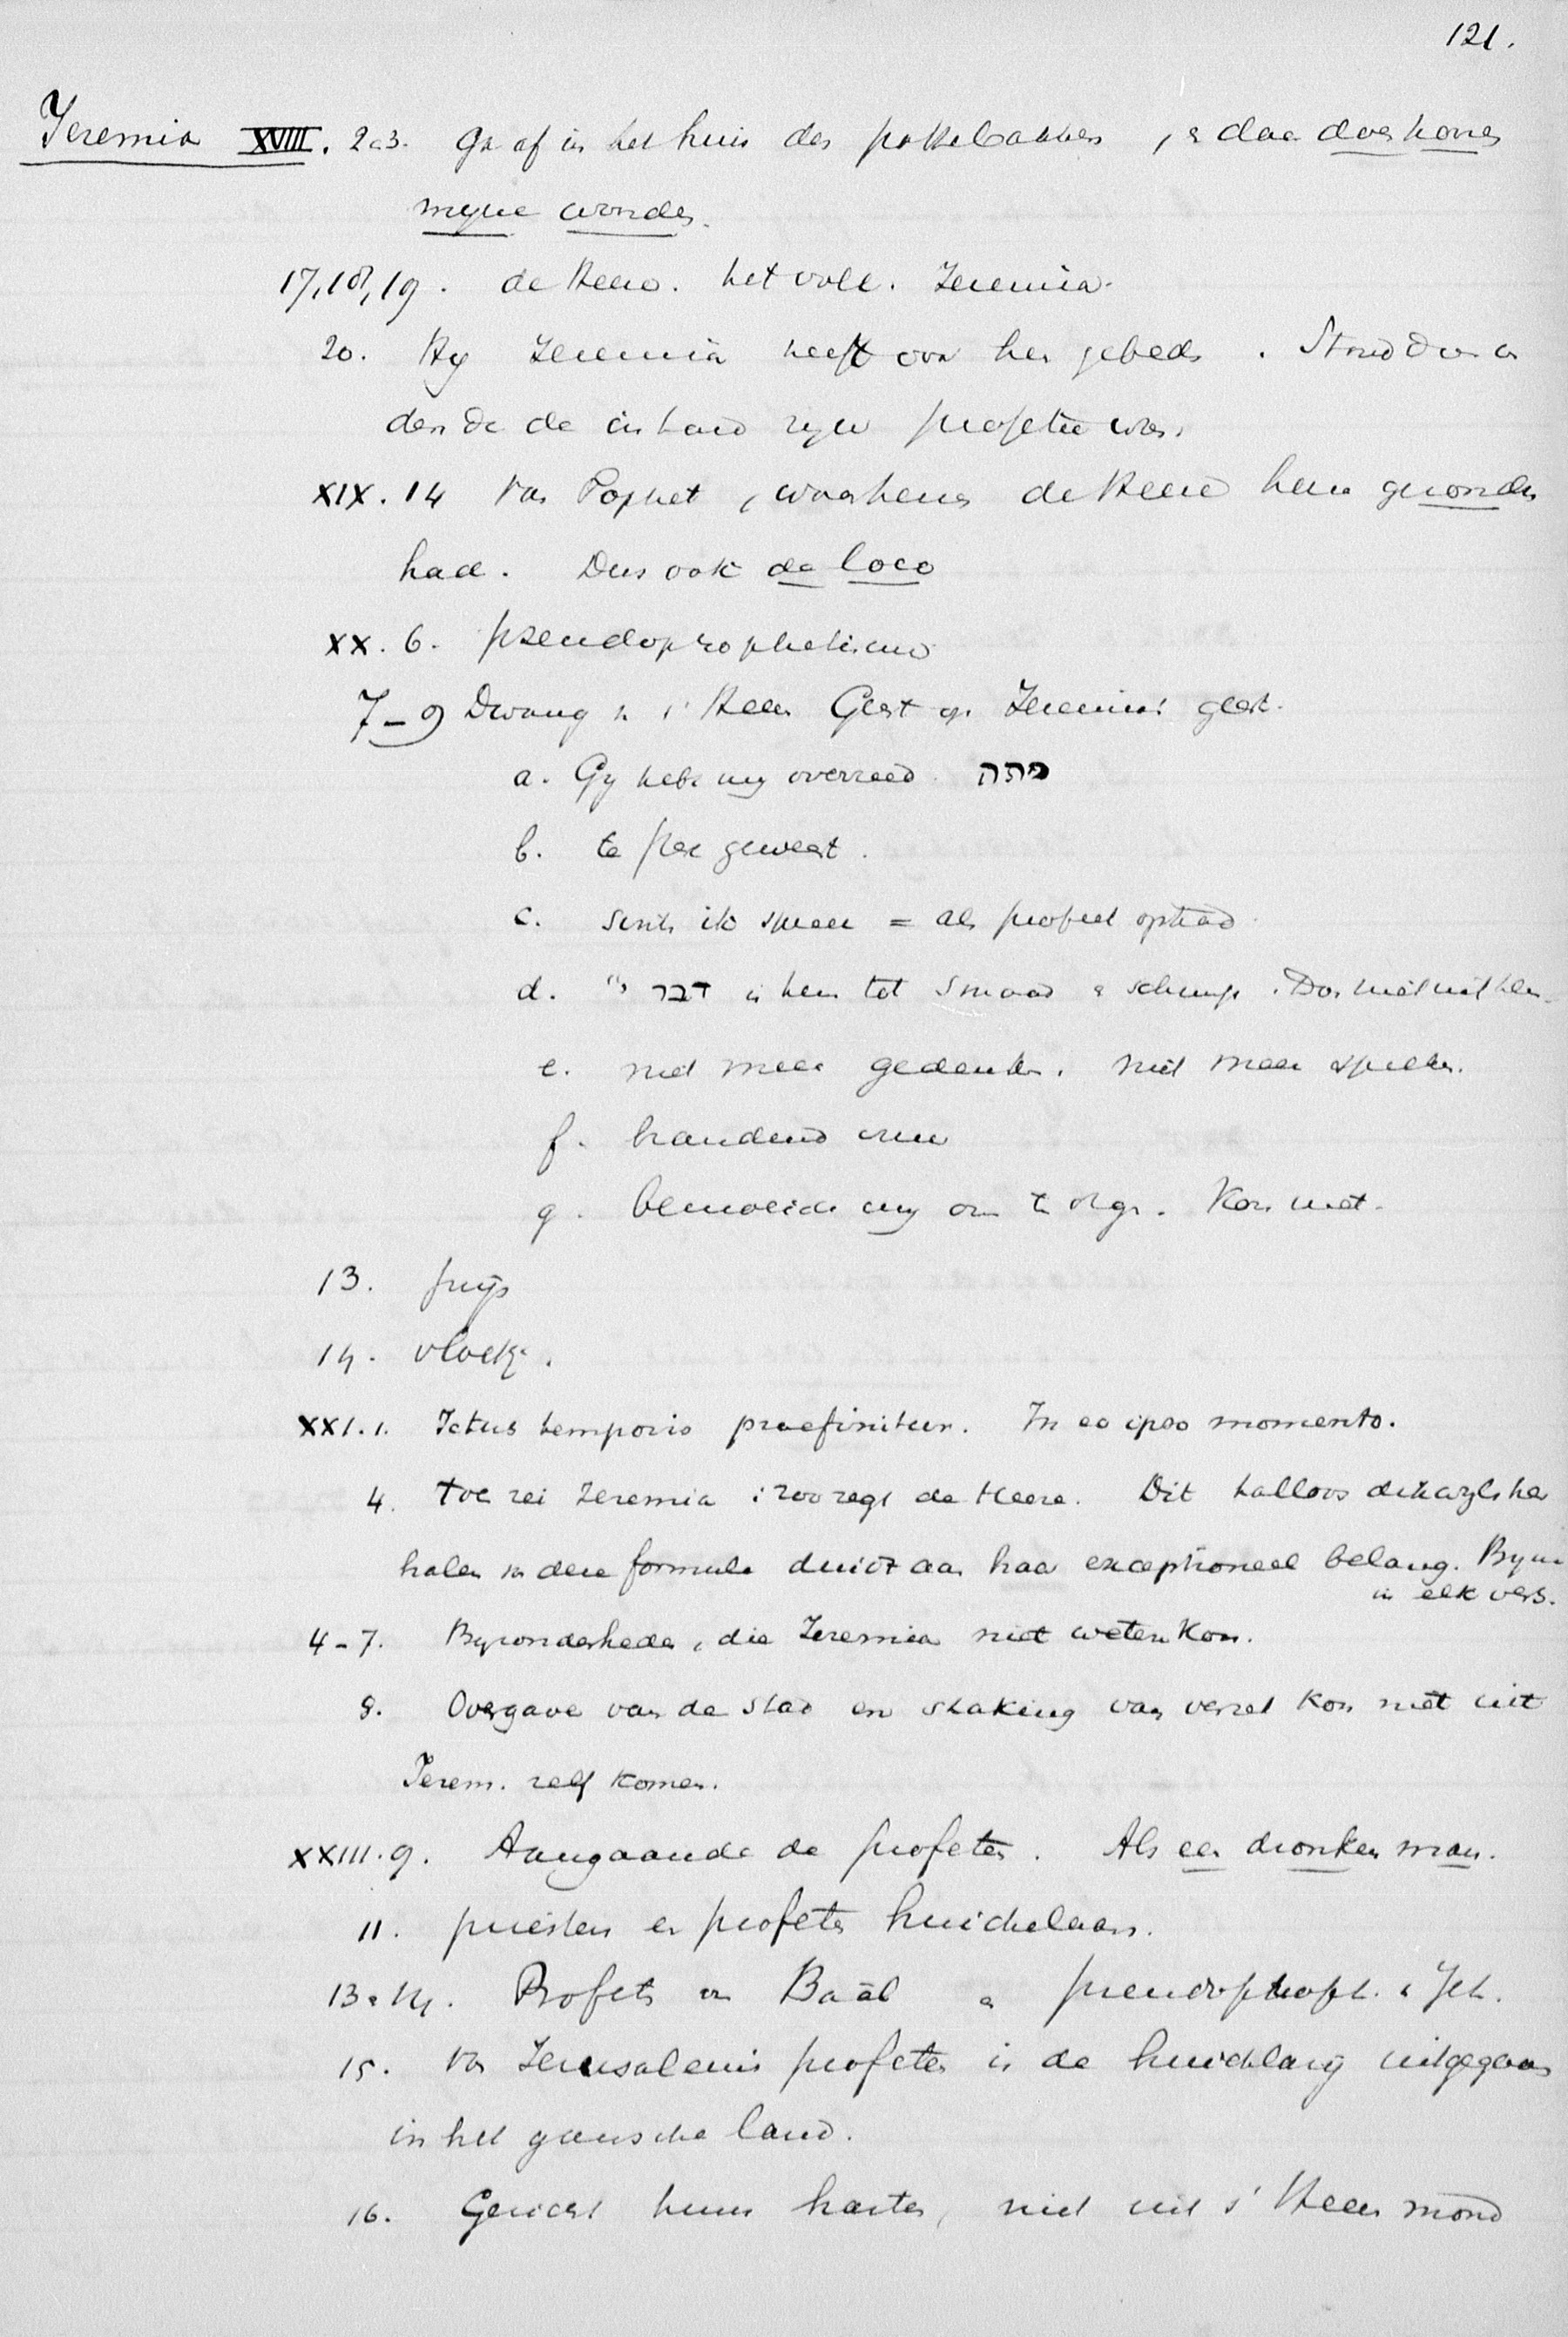 121.
Jeremia XVIII. 2 & 3. Ga af in het huis des pottebakkers, & daar doe horen
myne woorden.
17, 18, 19. de Heere. het volk. Jeremia.
20. Hy Jeremia heeft voor hen gebeden. Stond dus
de inhoud zyner profetie was.
XIX. 14 van Tophet, waarhenen de Heere hem gezonden
had. Dus ook de loco
XX. 6. pseudoprophetisme
7–9 Dwang v. 's Heeren Geest op Jeremia's geest.
a. Gy hebt my overreed. פתה
b. te sterk geweest.
c. sinds ik spreek = als profeet optrad.
d. דבר י״ is hem tot smaad & schimp. Dus niet uit hem.
e. niet meer gedenken. niet meer spreken.
f. brandend vuur
g. bemoeide my om te verdragen. Kon niet.
13. prijs
14. vloek.
XXI. 1. Ictus temporis praefinitur. In eo ipso momento.
4. toe zei Jeremia: zoo zegt de Heere. Dit talloos dikwyls her
halen van deze formule duidt aan haar exceptioneel belang. Byna
in elk vers.
4–7. Byzonderheden, die Jeremia niet weten kon.
8. Overgave van de stad en staking van verzet kon niet uit
Jerem. zelf komen.
XXIII. 9. Aangaande de profeten. Als een dronken man.
11. priesters en profeten huichelaars.
13 & 14. Profeten v. Baäl & pseudoproph. v. Jeh.
15. van Jerusalems profeten is de huichelarij uitgegaan
in het gansche land.
16. Gezicht hunner harten, niet uit 's Heeren mond